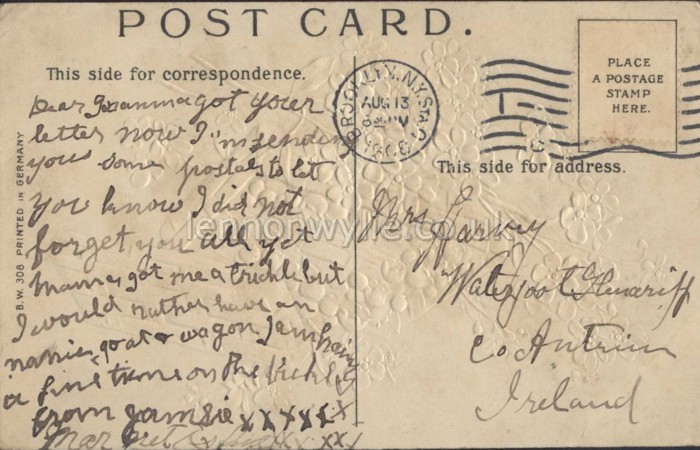 POST CARD.
This side for correspondence.
Dear Gramma got your
letter now I'm sending
you some postals to let
you know I did not
forget you all yet
Mama got me a tricicle but
I would rather have an
nanie goat & wagon I am having
a fine time on the tricicle
from Jamsie xxxxxx
Margret xx xx
B. W. 308 PRINTED IN GERMANY
BROOKLYN, N.Y. STA.
AUG 13
1908
PLACE
A POSTAGE
STAMP
HERE.
This side for address.
Mrs Harvey
Waterfoot Glenariff
Co Antrim
Ireland
lennonwylie.co.uk